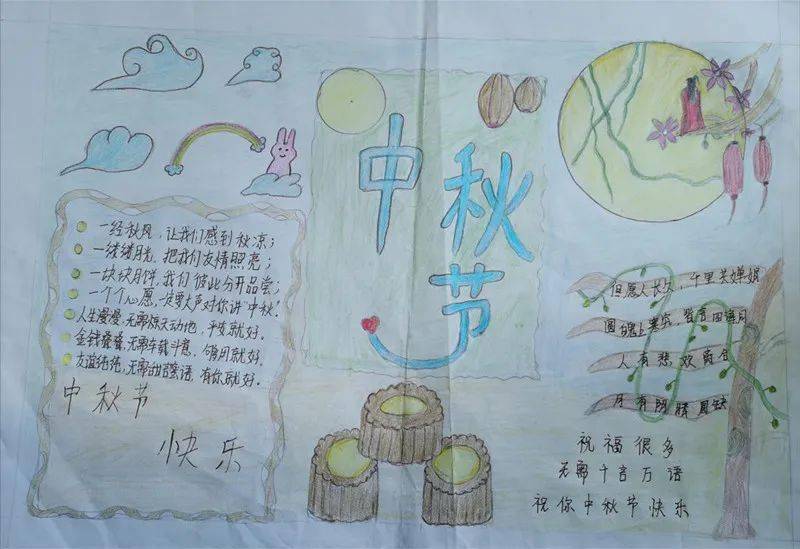 中秋节
一经秋风，让我们感到秋凉；
一缕缕月光，把我们友情照亮；
一块块月饼，我们彼此分开品尝；
一个个心愿，一定要大声对你讲"中秋"！
人生漫漫，无需惊天动地，平安就好。
金钱，无需车载斗量，够用就好。
友谊纯纯，无需甜言蜜语，有你就好。
中秋节
快乐
但愿人长久，千里共婵娟
圆魄上寒空，皆言四海同
人有悲欢离合
月有阴晴圆缺
祝福很多
无需千言万语
祝你中秋节快乐